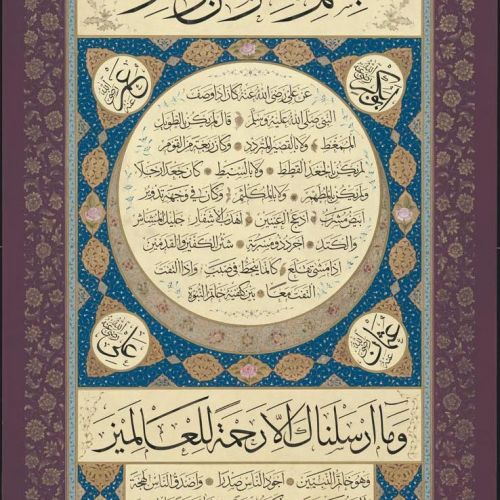 ابو بكر رضي الله عنه
عمر رضي الله عنه
عن علي رضي الله عنه كان اذا وصف
النبي صلى الله عليه وسلم قال لم يكن بالطويل
الممغط ولا بالقصير المتردد وكان ربعة من القوم
لم يكن بالجعد القطط ولا بالسبط كان جعدا رجلا
ولم يكن بالمطهم ولا بالمكلثم وكان في وجهه تدوير
ابيض مشرب ادعج العينين اهدب الاشفار جليل المشاش
والكتد اجرد ذو مسربة شثن الكفين والقدمين
اذا مشى تقلع كانما ينحط في صبب واذا التفت
التفت معا بين كتفيه خاتم النبوة
عثمان رضي الله عنه
علي رضي الله عنه
وما ارسلناك الا رحمة للعالمين
وهو خاتم النبيين اجود الناس صدرا واصدق الناس لهجة